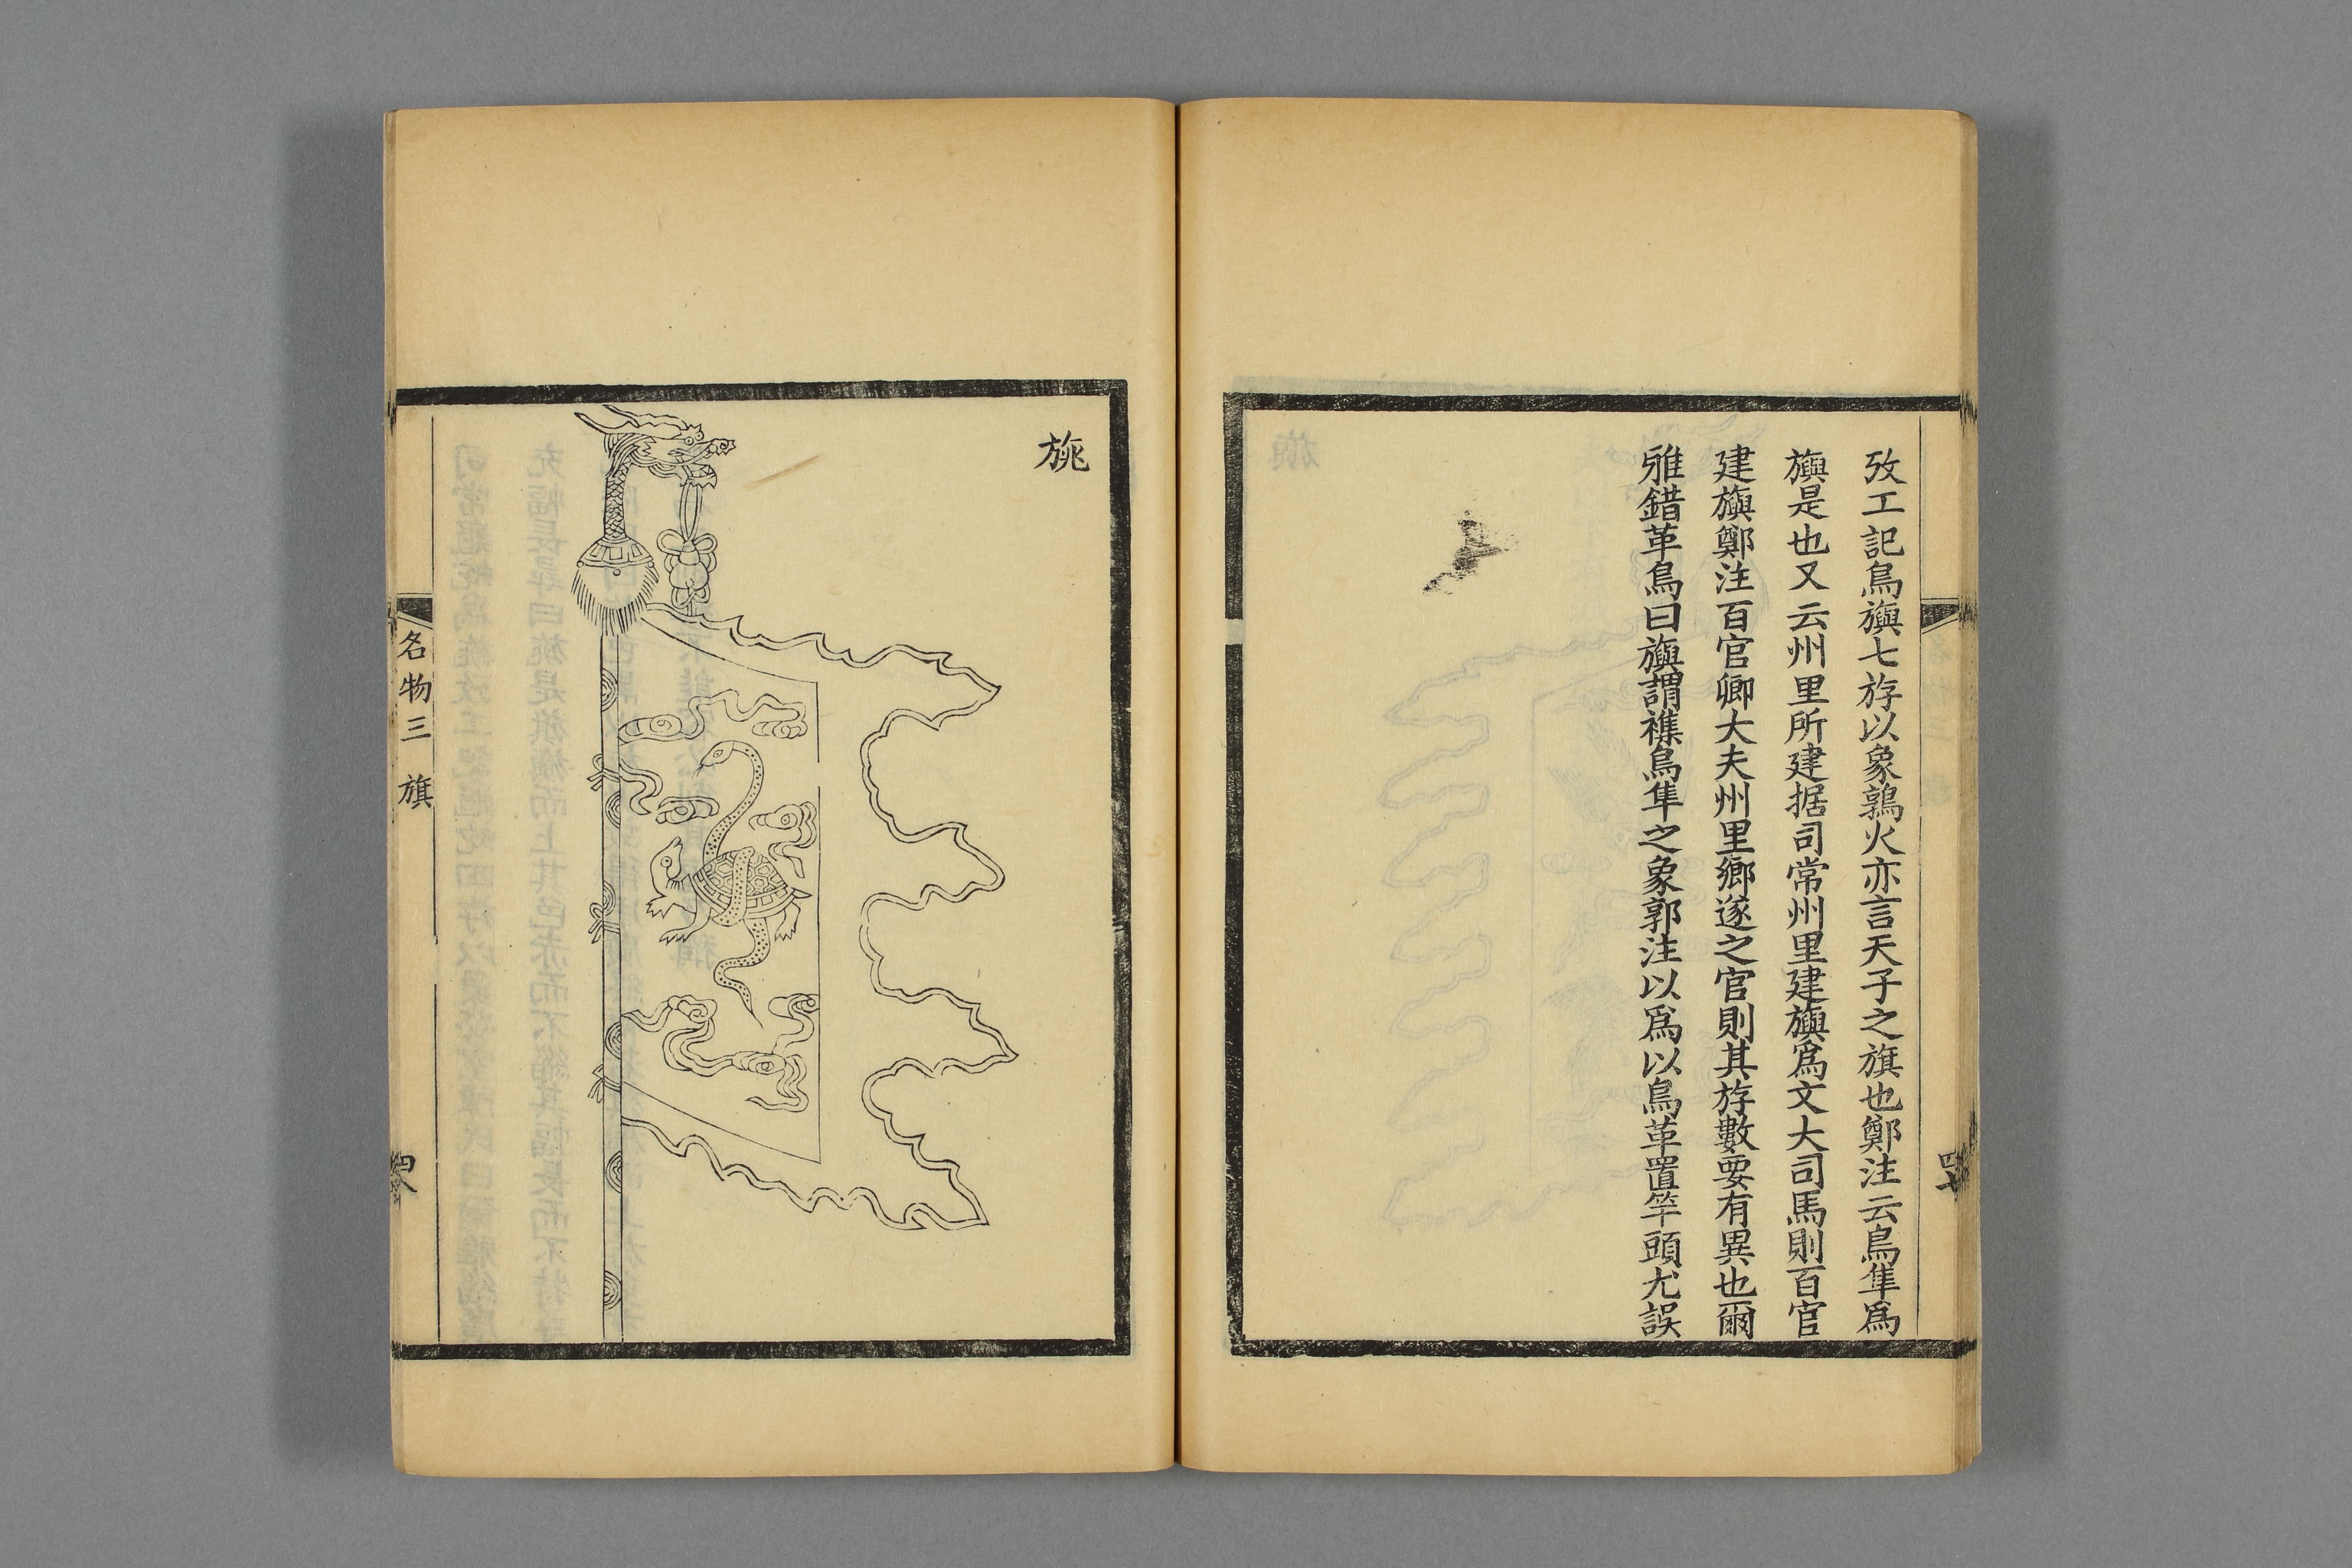 攷工記鳥旟七斿以象鶉火亦言天子之旗也鄭注云鳥隼爲
旟是也又云州里所建据司常州里建旟爲文大司馬則百官
建旟鄭注百官卿大夫州里鄉遂之官則其斿數要有異也爾
雅錯革鳥曰旟謂襍鳥隼之象郭注以爲以鳥革置竿頭尤誤
旐
名物三 旗